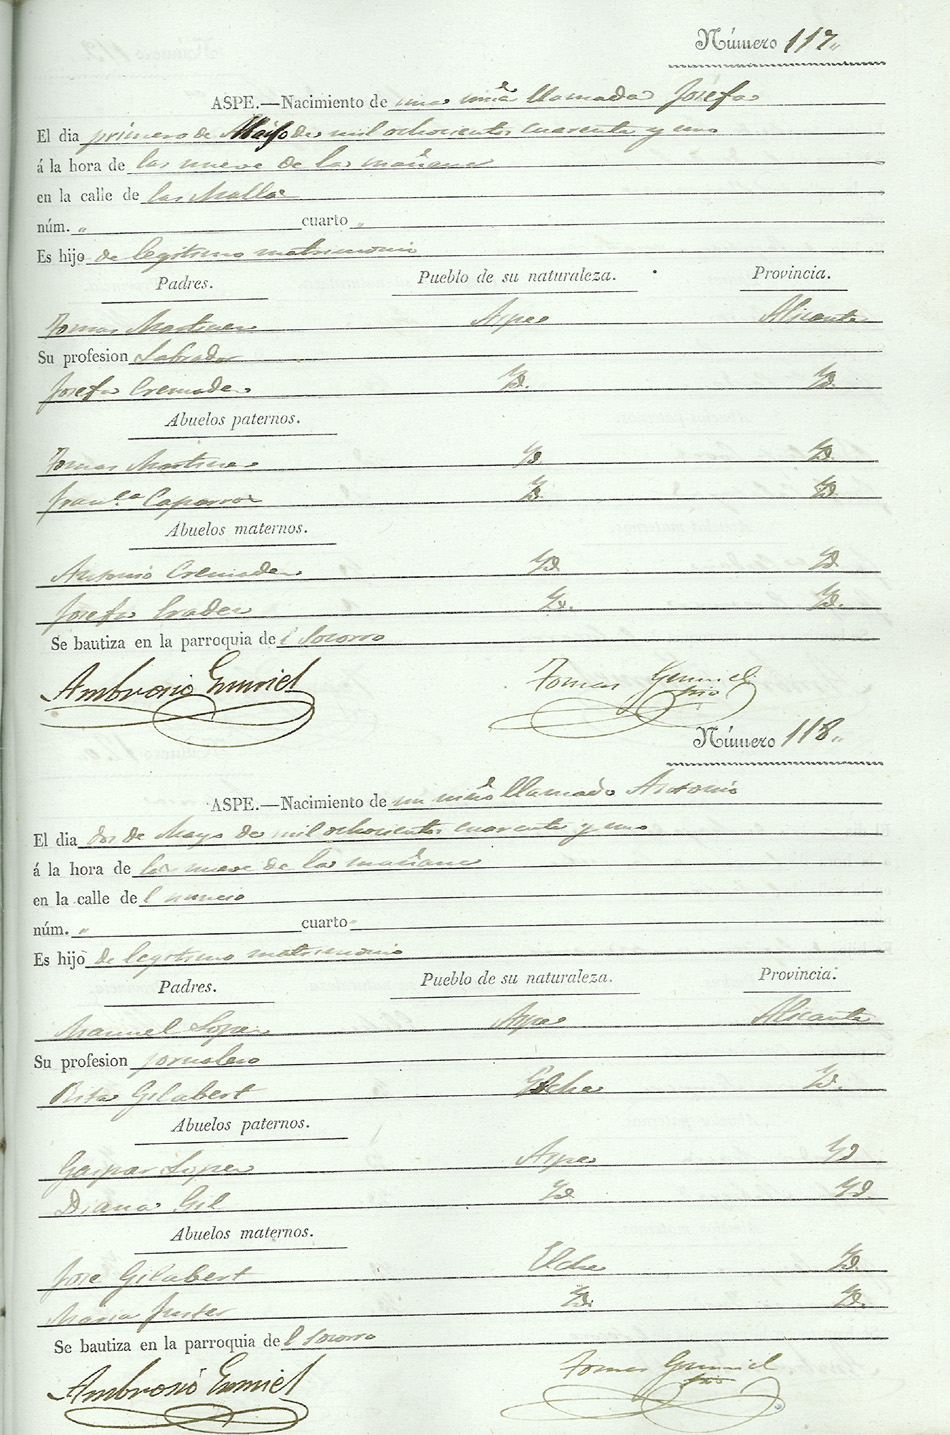 Número 117„
ASPE.—Nacimiento de una niña llamada Josefa
El dia primero de Mayo de mil ochocientos cuarenta y uno
á la hora de las nueve de la mañana
en la calle de la Malla
núm. „ cuarto „
Es hijo de legitimo matrimonio
Padres. Pueblo de su naturaleza. Provincia.
Tomas Martinez Aspe Alicante
Su profesion Labrador
Josefa Cremades Yd. Yd.
Abuelos paternos.
Tomas Martinez Yd Yd
Franca Caparros Yd Yd.
Abuelos maternos.
Antonio Cremades Yd Yd
Josefa Yd. Yd.
Se bautiza en la parroquia de l Socorro
Ambrosio Gumiel Tomas Gumiel
Srio
Número 118„
ASPE.—Nacimiento de un niño llamado Antonio
El dia dos de Mayo de mil ochocientos cuarenta y uno
á la hora de las nueve de la mañana
en la calle de l
núm. „ cuarto „
Es hijo de legitimo matrimonio
Padres. Pueblo de su naturaleza. Provincia.
Manuel Lopez Aspe Alicante
Su profesion jornalero
Rita Gilabert Elche Yd.
Abuelos paternos.
Gaspar Lopez Aspe Yd
Diana Gil Yd Yd.
Abuelos maternos.
Jose Gilabert Elche Yd.
Maria Yd. Yd.
Se bautiza en la parroquia de l Socorro
Ambrosio Gumiel Tomas Gumiel
Srio